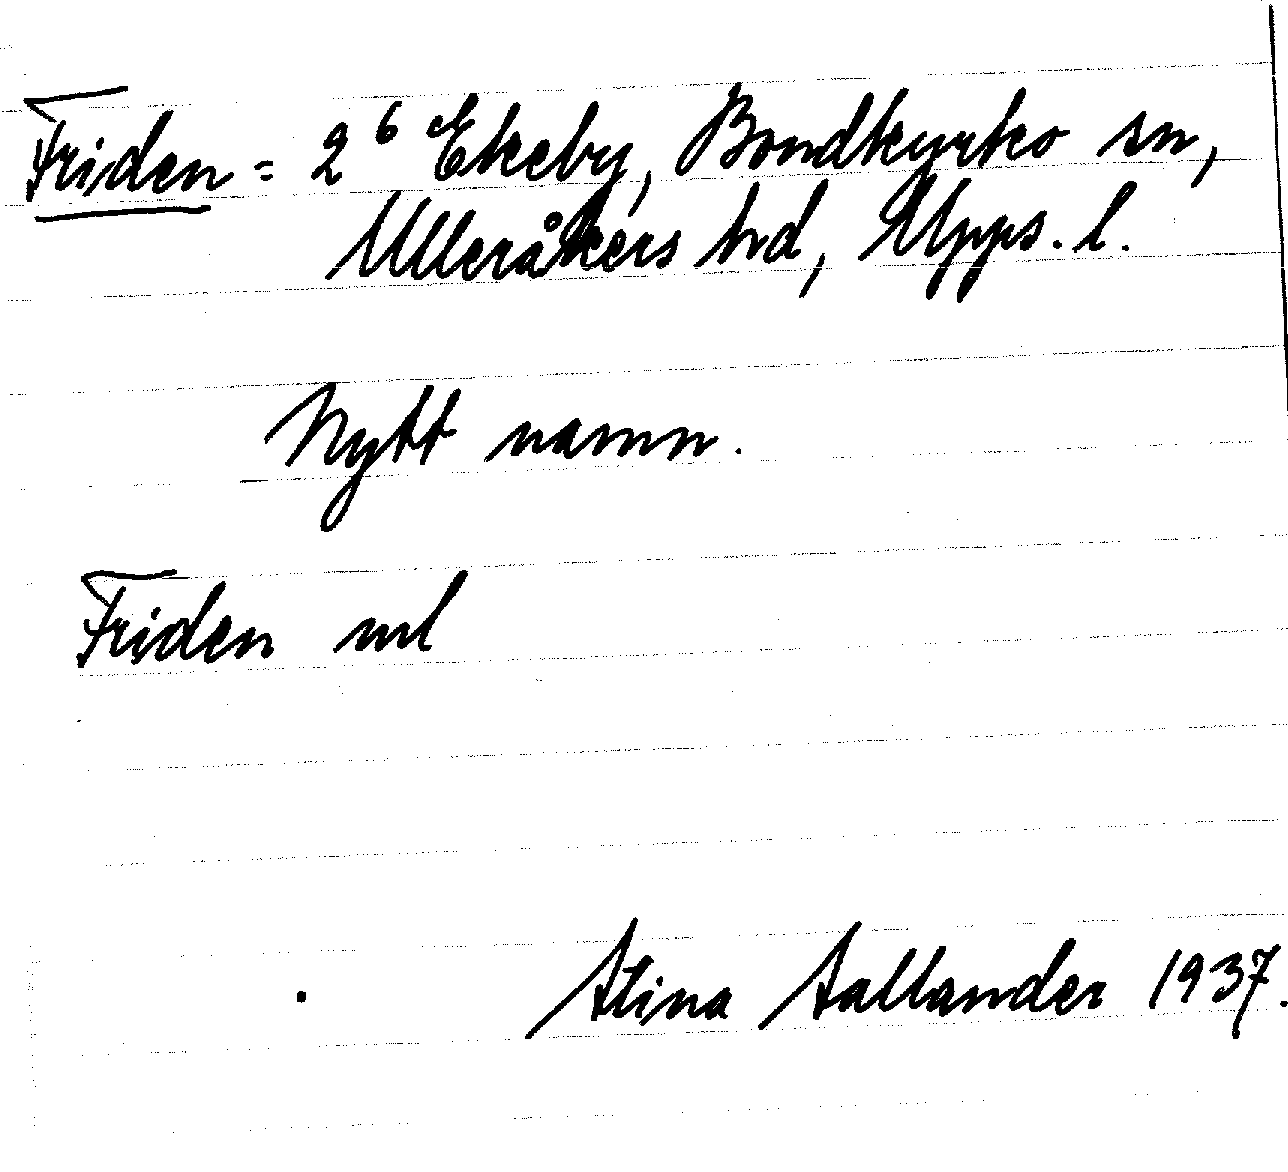 Friden = 2⁶ Ekeby, Bondkyrko sn,
Ulleråkers hd, Upps. l.
Nytt namn.
Friden ml
Stina Sallander 1937.